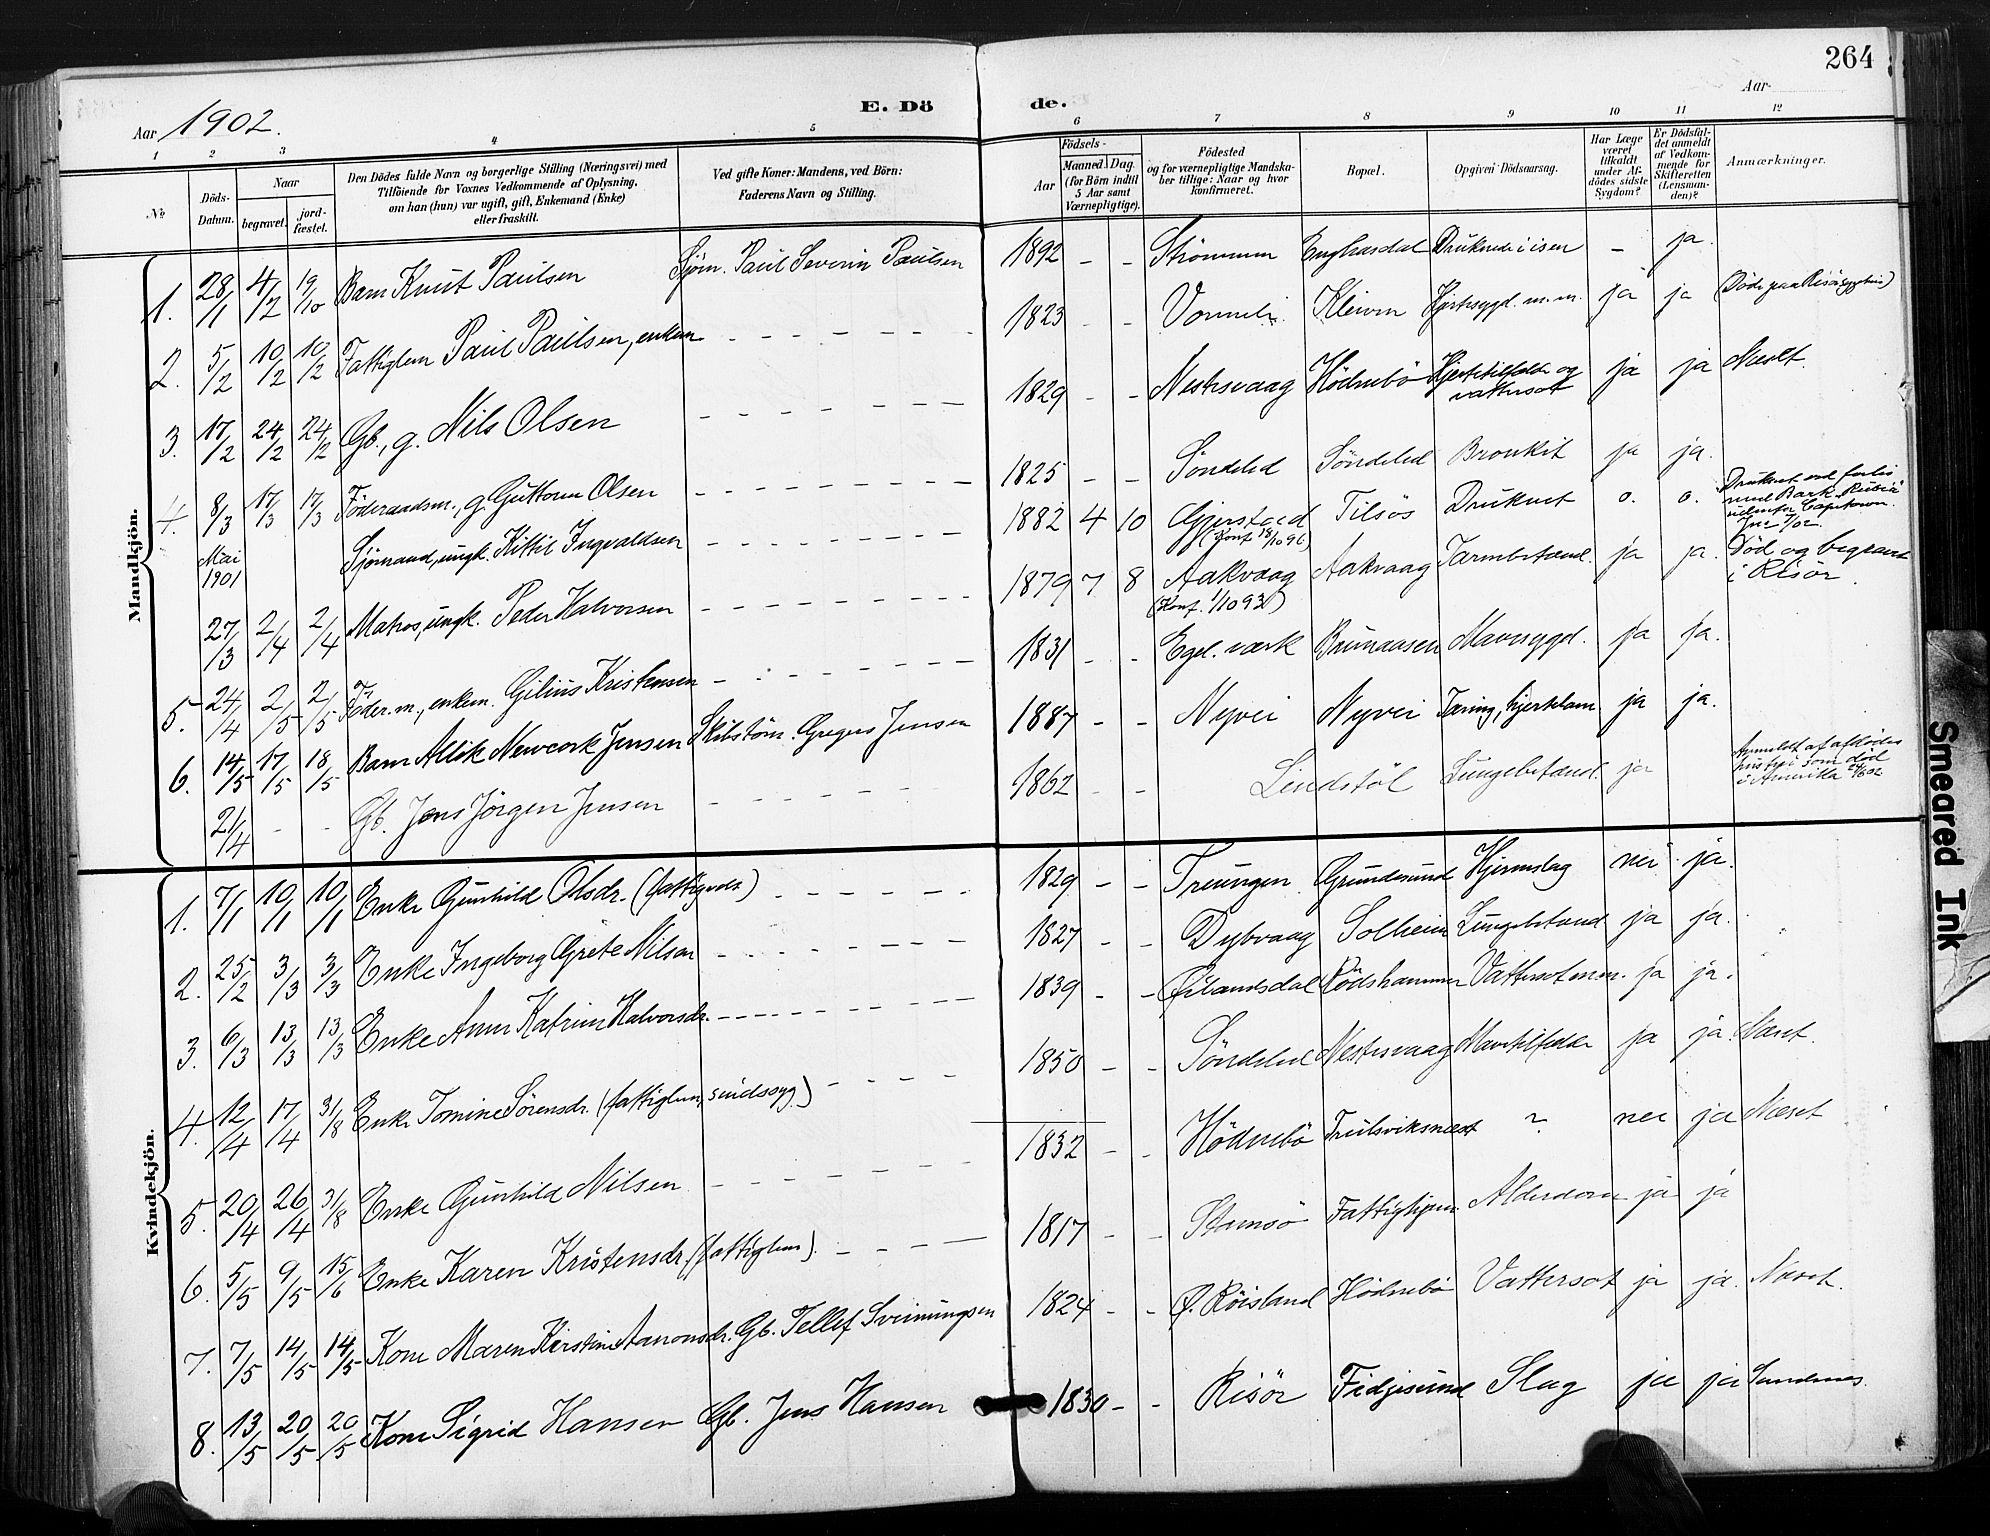 264
E. Döde.
Aar 1902.
Aar
1 2 3 4 5 6 7 8 9 10 11 12
No
Döds-Datum.
Naar
begravet.
jordfæstet.
Den Dödes fulde Navn og borgerlige Stilling (Næringsvei) med
Tilföiende for Voxnes Vedkommende af Oplysning,
om han (hun) var ugift, gift, Enkemand (Enke)
eller fraskilt.
Ved gifte Koner: Mandens, ved Börn:
Faderens Navn og Stilling.
Födsels-
Aar
Maaned. Dag.
(for Börn indtil
5 Aar samt
Værnepligtige).
Födested
og for værnepligtige Mandskaber tillige: Naar og hvor
konfirmeret.
Bopæl.
Opgiven Dödsaarsag.
Har Læge
været
tilkaldt
under Afdödes sidste
Sygdom?
Er Dödsfaldet anmeldt
af Vedkommende for
Skifteretten
(Lensmanden)?
Anmærkninger.
Mandkjön.
1. 28/1 4/2 19/10 Barn Knut Paulsen Sjøm. Paul Severin Paulsen 1892 - - Strømmen Druknede i isen - ja.
2. 5/2 10/2 10/2 Fattiglem Paul Paulsen, enkem. 1823 - - Vormeli Kleiven Hjertesygd. m. m. ja ja
3. 17/2 24/2 24/2 Gb., g. Nils Olsen 1829 - - Nestesvaag Hödnebö Hjertetilfælde og vattersot ja ja Næset.
4. 8/3 17/3 17/3 Föderaadsm., g. Guttorm Olsen 1825 - - Söndeled Söndeled Bronkit ja ja.
Mai 1901 Sjömand, ungk. Kittil Ingvaldsen 1882 4 10 Gjerstad (Konf. 18/10 96) Tilsös Druknet o. o. Druknet ved forlis med Bark udenfor Capetown.
27/3 2/4 2/4 Matros, ungk. Peder Halvorsen 1879 7 8 Aakvaag (Konf. 1/10 93) Aakvaag Tarmbetænd. ja ja. Död og begravet i Risör.
5. 24/4 2/5 2/5 Föder.m., enkem. Gilius Kristensen 1831 - - Egel. værk Brunaasen Mavesygd. ja ja.
6. 14/5 17/5 18/5 Barn Newcork Jensen Skibstöm. Gregers Jensen 1887 - - Nyvei Nyvei Tæring, hjertelam. ja ja.
21/4 - - Gb. Jens Jörgen Jensen 1862 - - Lindstöl Lungebetænd. ja Anmeldt af afdödes hustru som död i Amerika
Kvindekjön.
1. 7/1 10/1 10/1 Enke Gunhild Olsdr. 1829 - - Treungen Grundesund Hjerneslag nei ja.
2. 25/2 3/3 3/3 Enke Ingeborg Grete Nilsen 1827 - - Dybvaag Solheim Lungebetænd ja ja.
3. 6/3 13/3 13/3 Enke Anne Katrine Halvorsdr. 1839 - - Øilandsdal Rödshammer Vattersot m m. ja ja.
4. 12/4 17/4 31/8 Enke Tomine Sörensdr. (fattiglem, sindssyg) 1850 - - Söndeled Nestesvaag Mavetilfælde ja ja Næset.
5. 20/4 26/4 31/8 Enke Gunhild Nilsen 1832 - - Hödnebö Trulsviksnæset ? nei ja Næset
6. 5/5 9/5 15/6 Enke Karen Kristensdr. (fattiglem). 1817 - - Stamsö Fattighjem. Alderdom ja ja
7. 7/5 14/5 14/5 Kone Maren Kirstine Aanonsdr. Gb. Tellef Sveinungsen 1824 - - Ø. Röisland Hödnebö Vattersot ja ja. Næset.
8. 13/5 20/5 20/5 Kone Sigrid Hansen Gb. Jens Hansen 1830 - - Risör Fidjesund Slag ja ja Sandnes.
Smeared Ink